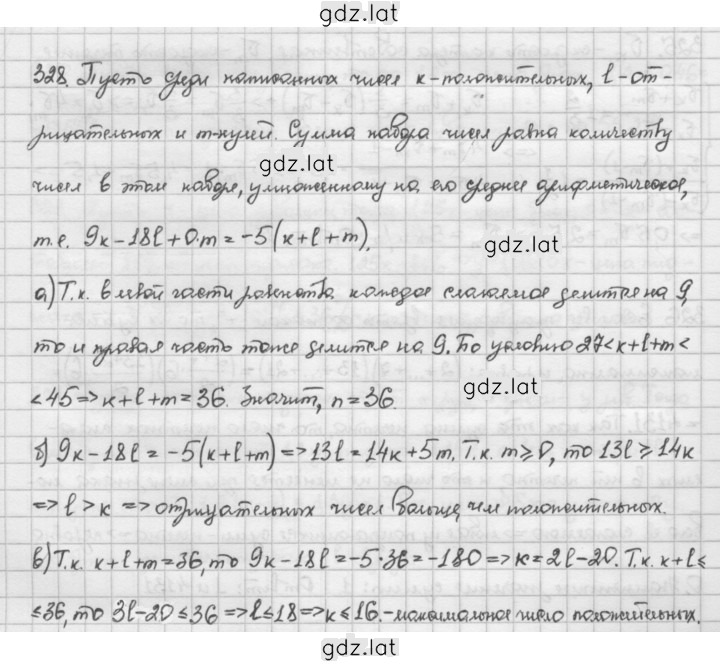 gdz.lat
328. Пусть среди написанных чисел k-положительных, l-от-
рицательных и m-нулей. Сумма набора чисел равна количеству
gdz.lat
чисел в этом наборе, умноженному на его среднее арифметическое,
т.е. 9k-18l+0·m=-5(k+l+m).
gdz.lat
а) Т.к. в левой части равенства каждое слагаемое делится на 9,
то и правая часть тоже делится на 9. По условию 27<k+l+m<
<45=>k+l+m=36. Значит, n=36.
gdz.lat
б) 9k-18l=-5(k+l+m)=>13l=14k+5m. Т.к. m⩾0, то 13l⩾14k
=>l>k=>отрицательных чисел больше, чем положительных.
в) Т.к. k+l+m=36, то 9k-18l=-5·36=-180=>k=2l-20. Т.к. k+l≤
≤36, то 3l-20≤36=>l≤18=>k≤16.-максимальное число положительных.
gdz.lat